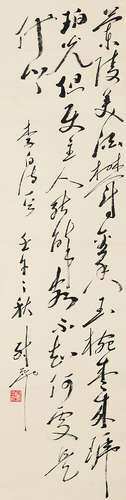 蘭陵美酒鬱金香玉碗盛來琥
珀光但使主人能醉客不知何處是
他鄉
李白詩 壬午之秋